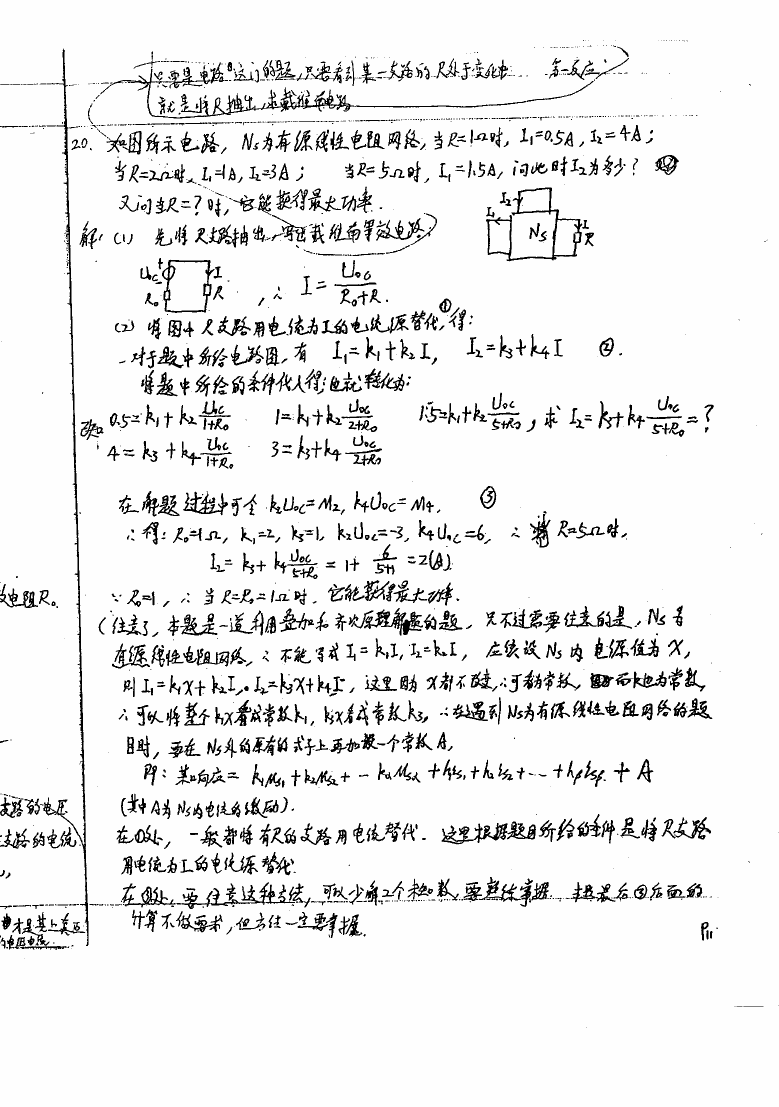 只要是电路这门的题,只要看到某一支路的R处于变化中 第一反应:
就是将R抽出,求戴维南电路
20. 如图所示电路, Ns为有源线性电阻网络,当R=1Ω时, I₁=0.5A, I₂=4A;
当R=2Ω时, I₁=1A, I₂=3A; 当R=5Ω时, I₁=1.5A, 问此时I₂为多少?
又问当R=?时, 它能获得最大功率.
I₂ I₁ Ns I R
解: (1) 先将R支路抽出,写出戴维南等效电路
Uoc + - R₀ I R , ∴ I = Uoc/(R₀+R).
(2) 将图中R支路用电流为I的电流源替代①,得:
对于题中所给电路图,有 I₁=k₁+k₂I, I₂=k₃+k₄I ②.
将题中所给的条件代入得:也就转化为:
已知 0.5=k₁+k₂ Uoc/(1+R₀) 1=k₁+k₂ Uoc/(2+R₀) 1.5=k₁+k₂ Uoc/(5+R₀), 求 I₂=k₃+k₄ Uoc/(5+R₀)=?
4=k₃+k₄ Uoc/(1+R₀) 3=k₃+k₄ Uoc/(2+R₀)
在解题过程中可令 k₂Uoc=M₂, k₄Uoc=M₄, ③
∴得: R₀=1Ω, k₁=2, k₃=1, k₂Uoc=-3, k₄Uoc=6, ∴ 当R=5Ω时,
I₂=k₃+k₄ Uoc/(5+R₀) = 1+ 6/(5+1) =2(A)
∵R₀=1, ∴当R=R₀=1Ω时, 它能获得最大功率.
(注意了, 本题是一道利用叠加和齐次原理解题的题, 只不过需要注意的是, Ns为
有源线性电阻网络, ∴不能写成I₁=k₁I, I₂=k₂I, 应该设Ns内电源值为X,
则I₁=k₁X+k₂I, I₂=k₃X+k₄I, 这里因为X都不改变,∴可看为常数, 而k也为常数,
∴可以将整个k₁X看成常数k₁, k₃X看成常数k₃, ∴在遇到Ns为有源线性电阻网络的题
目时, 要在Ns外的原有的式子上再加一个常数A,
即: 某响应= k₁us₁+k₂us₂+ … +h₁is₁+h₂is₂+ … + A
(其中A为Ns内电源的激励).
在①处, 一般都将有R的支路用电流替代. 这里根据题目所给的条件是将R支路
用电流为I的电流源替代.
在③处,要注意这种方法, 可以少解2个未知数, 要熟练掌握.
计算不做要求,但方法一定要掌握.
P11
电阻R₀.
支路的电压
支路的电流